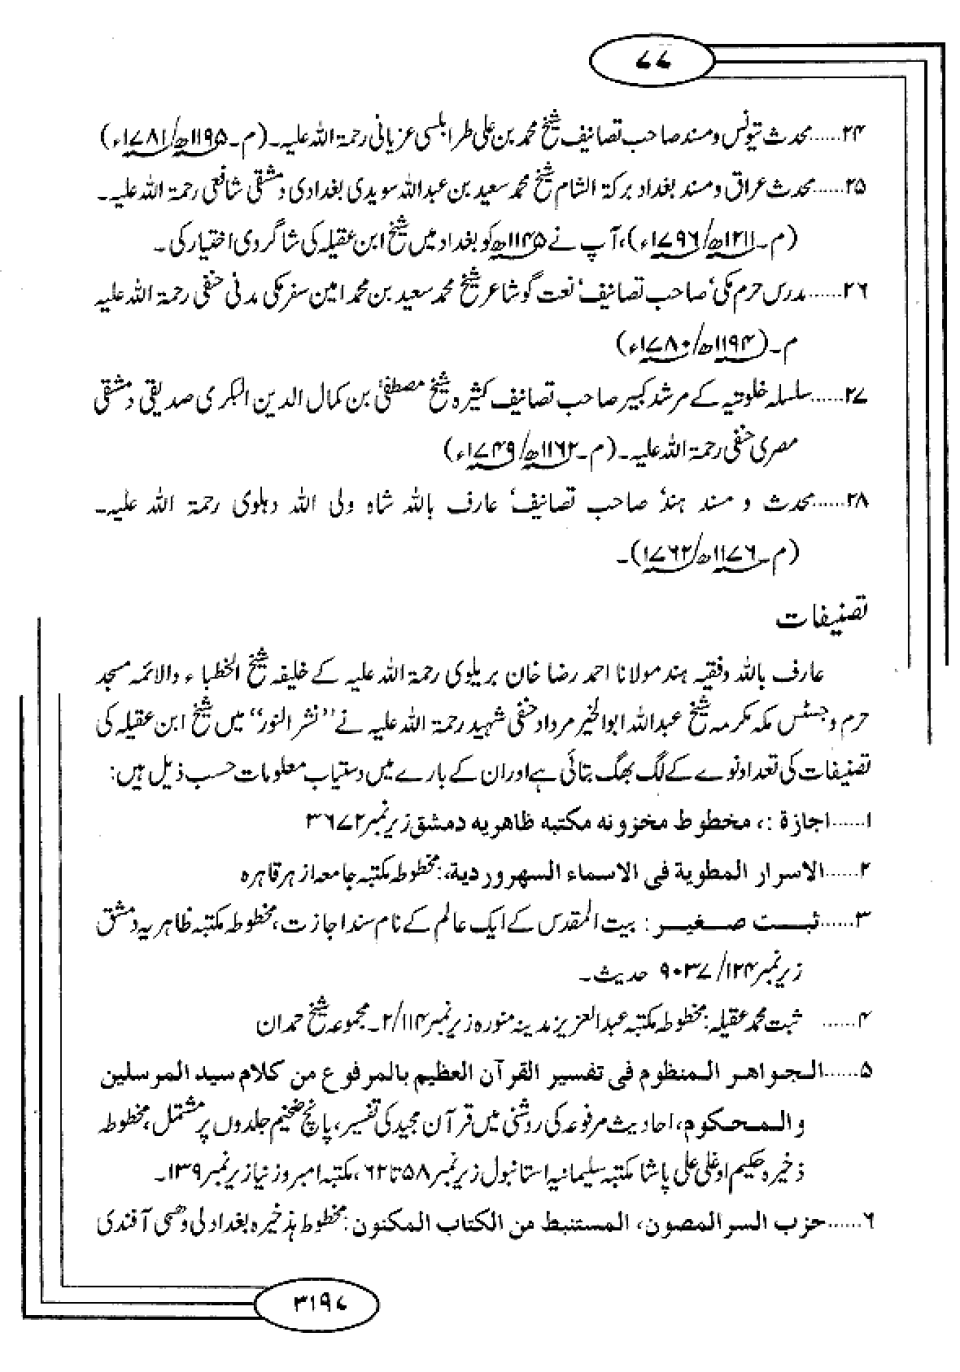 ۷۷
۲۴......محدث تیونس و مسند صاحب تصانیف شیخ محمد بن علی طرابلسی غریانی رحمۃ اللہ علیہ۔(م۔۱۱۹۵ھ/۱۷۸۱ء)
۲۵......محدث عراق و مسند بغداد برکۃ الشام شیخ محمد سعید بن عبداللہ سویدی بغدادی دمشقی شافعی رحمۃ اللہ علیہ۔
(م۔۱۲۱۱ھ/۱۷۹۶ء)، آپ نے ۱۱۴۵ھ کو بغداد میں شیخ ابن عقیلہ کی شاگردی اختیار کی۔
۲۶......مدرس حرم مکی، صاحب تصانیف، نعت گو شاعر شیخ محمد سعید بن محمد امین سفر مکی مدنی حنفی رحمۃ اللہ علیہ
م۔(۱۱۹۴ھ/۱۷۸۰ء)
۲۷......سلسلہ خلوتیہ کے مرشد کبیر صاحب تصانیف کثیرہ شیخ مصطفیٰ بن کمال الدین البکری صدیقی دمشقی
مصری حنفی رحمۃ اللہ علیہ۔(م۔۱۱۶۲ھ/۱۷۴۹ء)
۲۸......محدث و مسند ہند، صاحب تصانیف، عارف باللہ شاہ ولی اللہ دہلوی رحمۃ اللہ علیہ۔
(م۔۱۱۷۶ھ/۱۷۶۲)۔
تصنیفات
عارف باللہ و فقیہ ہند مولانا احمد رضا خان بریلوی رحمۃ اللہ علیہ کے خلیفہ شیخ الخطباء والائمہ مسجد
حرم و جسٹس مکہ مکرمہ شیخ عبداللہ ابوالخیر مرداد حنفی شہید رحمۃ اللہ علیہ نے ’’نشر النور‘‘ میں شیخ ابن عقیلہ کی
تصنیفات کی تعداد نوے کے لگ بھگ بتائی ہے اور ان کے بارے میں دستیاب معلومات حسب ذیل ہیں:
۱......اجازۃ :، مخطوط مخزونہ مکتبہ ظاہریہ دمشق زیر نمبر ۳۶۷۲
۲......الاسرار المطویۃ فی الاسماء السهروردیۃ،: مخطوطہ مکتبہ جامعہ ازہر قاہرہ
۳......ثبت صغیر : بیت المقدس کے ایک عالم کے نام سند اجازت، مخطوطہ مکتبہ ظاہریہ دمشق
زیر نمبر ۱۲۴/ ۹۰۳۷ حدیث۔
۴...... ثبت محمد عقیلہ: مخطوطہ مکتبہ عبدالعزیز مدینہ منورہ زیر نمبر ۲/۱۱۴۔ مجموعہ شیخ حمدان
۵......الجواهر المنظوم فی تفسیر القرآن العظیم بالمرفوع من کلام سید المرسلین
والمحکوم، احادیث مرفوعہ کی روشنی میں قرآن مجید کی تفسیر، پانچ ضخیم جلدوں پر مشتمل، مخطوطہ
ذخیرہ حکیم اوغلی علی پاشا مکتبہ سلیمانیہ استانبول زیر نمبر ۵۸ تا ۶۲، مکتبہ امبروزنیا زیر نمبر ۱۳۹۔
۶......حزب السر المصون، المستنبط من الکتاب المکنون: مخطوط بذخیرہ بغداد لی وھبی آفندی
۳۱۹۷